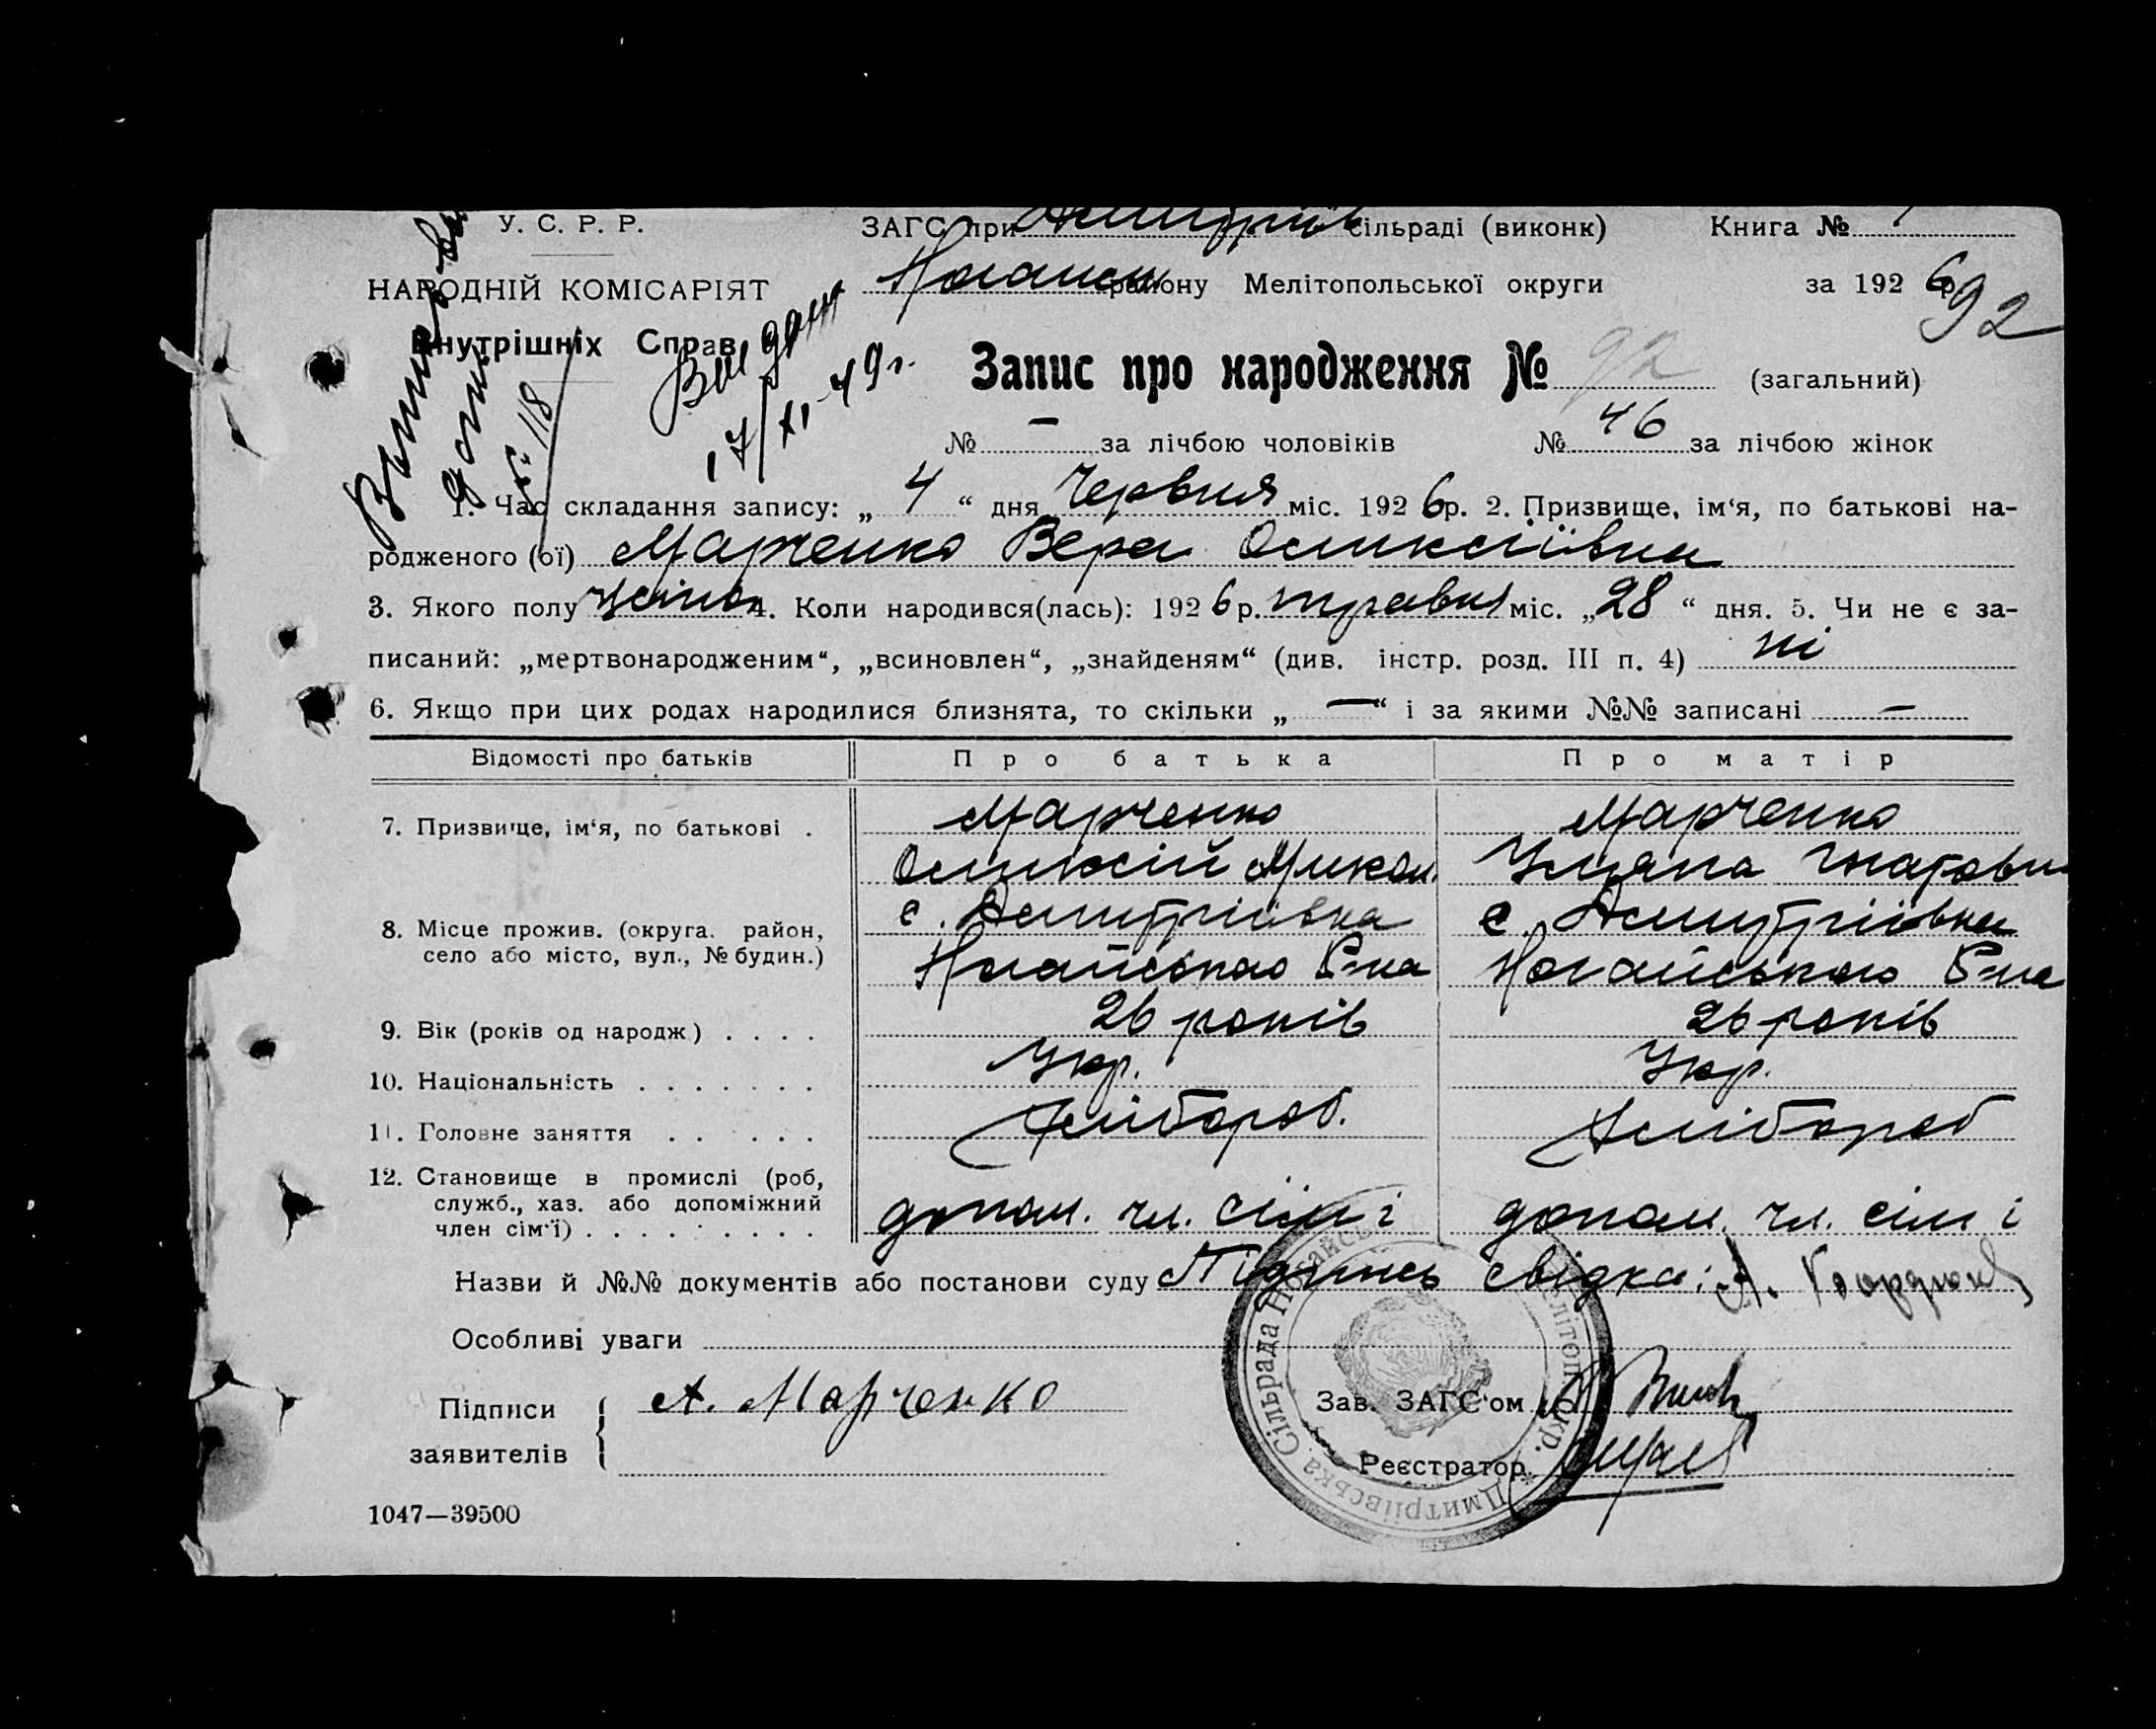 У. С. Р. Р. ЗАГС при Дмитріїв сільраді (виконк) Книга №
НАРОДНІЙ КОМІСАРІЯТ Ногайськ району Мелітопольської округи за 1926 р. 92
Внутрішніх Справ
Видан
17/XI-49 г.
№ 118
Запис про народження № 92 (загальний)
№ — за лічбою чоловіків № 46 за лічбою жінок
1. Час складання запису: „ 4 “ дня Червня міс. 1926р. 2. Призвище, ім‘я, по батькові на-
родженого (ої) Марченко Вера Олексіївна
3. Якого полу жіноч 4. Коли народився(лась): 1926р. травня міс. „28“ дня. 5. Чи не є за-
писаний: „мертвонародженим“, „всиновлен“, „знайденям“ (див. інстр. розд. III п. 4) ні
6. Якщо при цих родах народилися близнята, то скільки „ — “ і за якими №№ записані —
Відомості про батьків Про батька Про матір
7. Призвище, ім‘я, по батькові . Марченко Марченко
Оликсій Микол. Уляна Гнатовн
8. Місце прожив. (округа. район, с. Дмитріївка с. Дмитріївка
село або місто, вул., № будин.) Ногайського Р-на Ногайського Р-на
9. Вік (років од народж) . . . . 26 років 26 років
10. Національність . . . . . . . Укр. Укр.
11. Головне заняття . . . . . Хлібороб. Хлібороб
12. Становище в промислі (роб,
служб., хаз. або допоміжний
член сім‘ї) . . . . . . . . . допом. чл. сімі допом. чл. сімі
Назви й №№ документів або постанови суду Підпись свідка: А.
Особливі уваги
Підписи заявителів А. Марченко
Зав. ЗАГС‘ом
Реєстратор
Дмитріївська Сільрада Ногайськ Мелітоп. Окр.
1047—39500